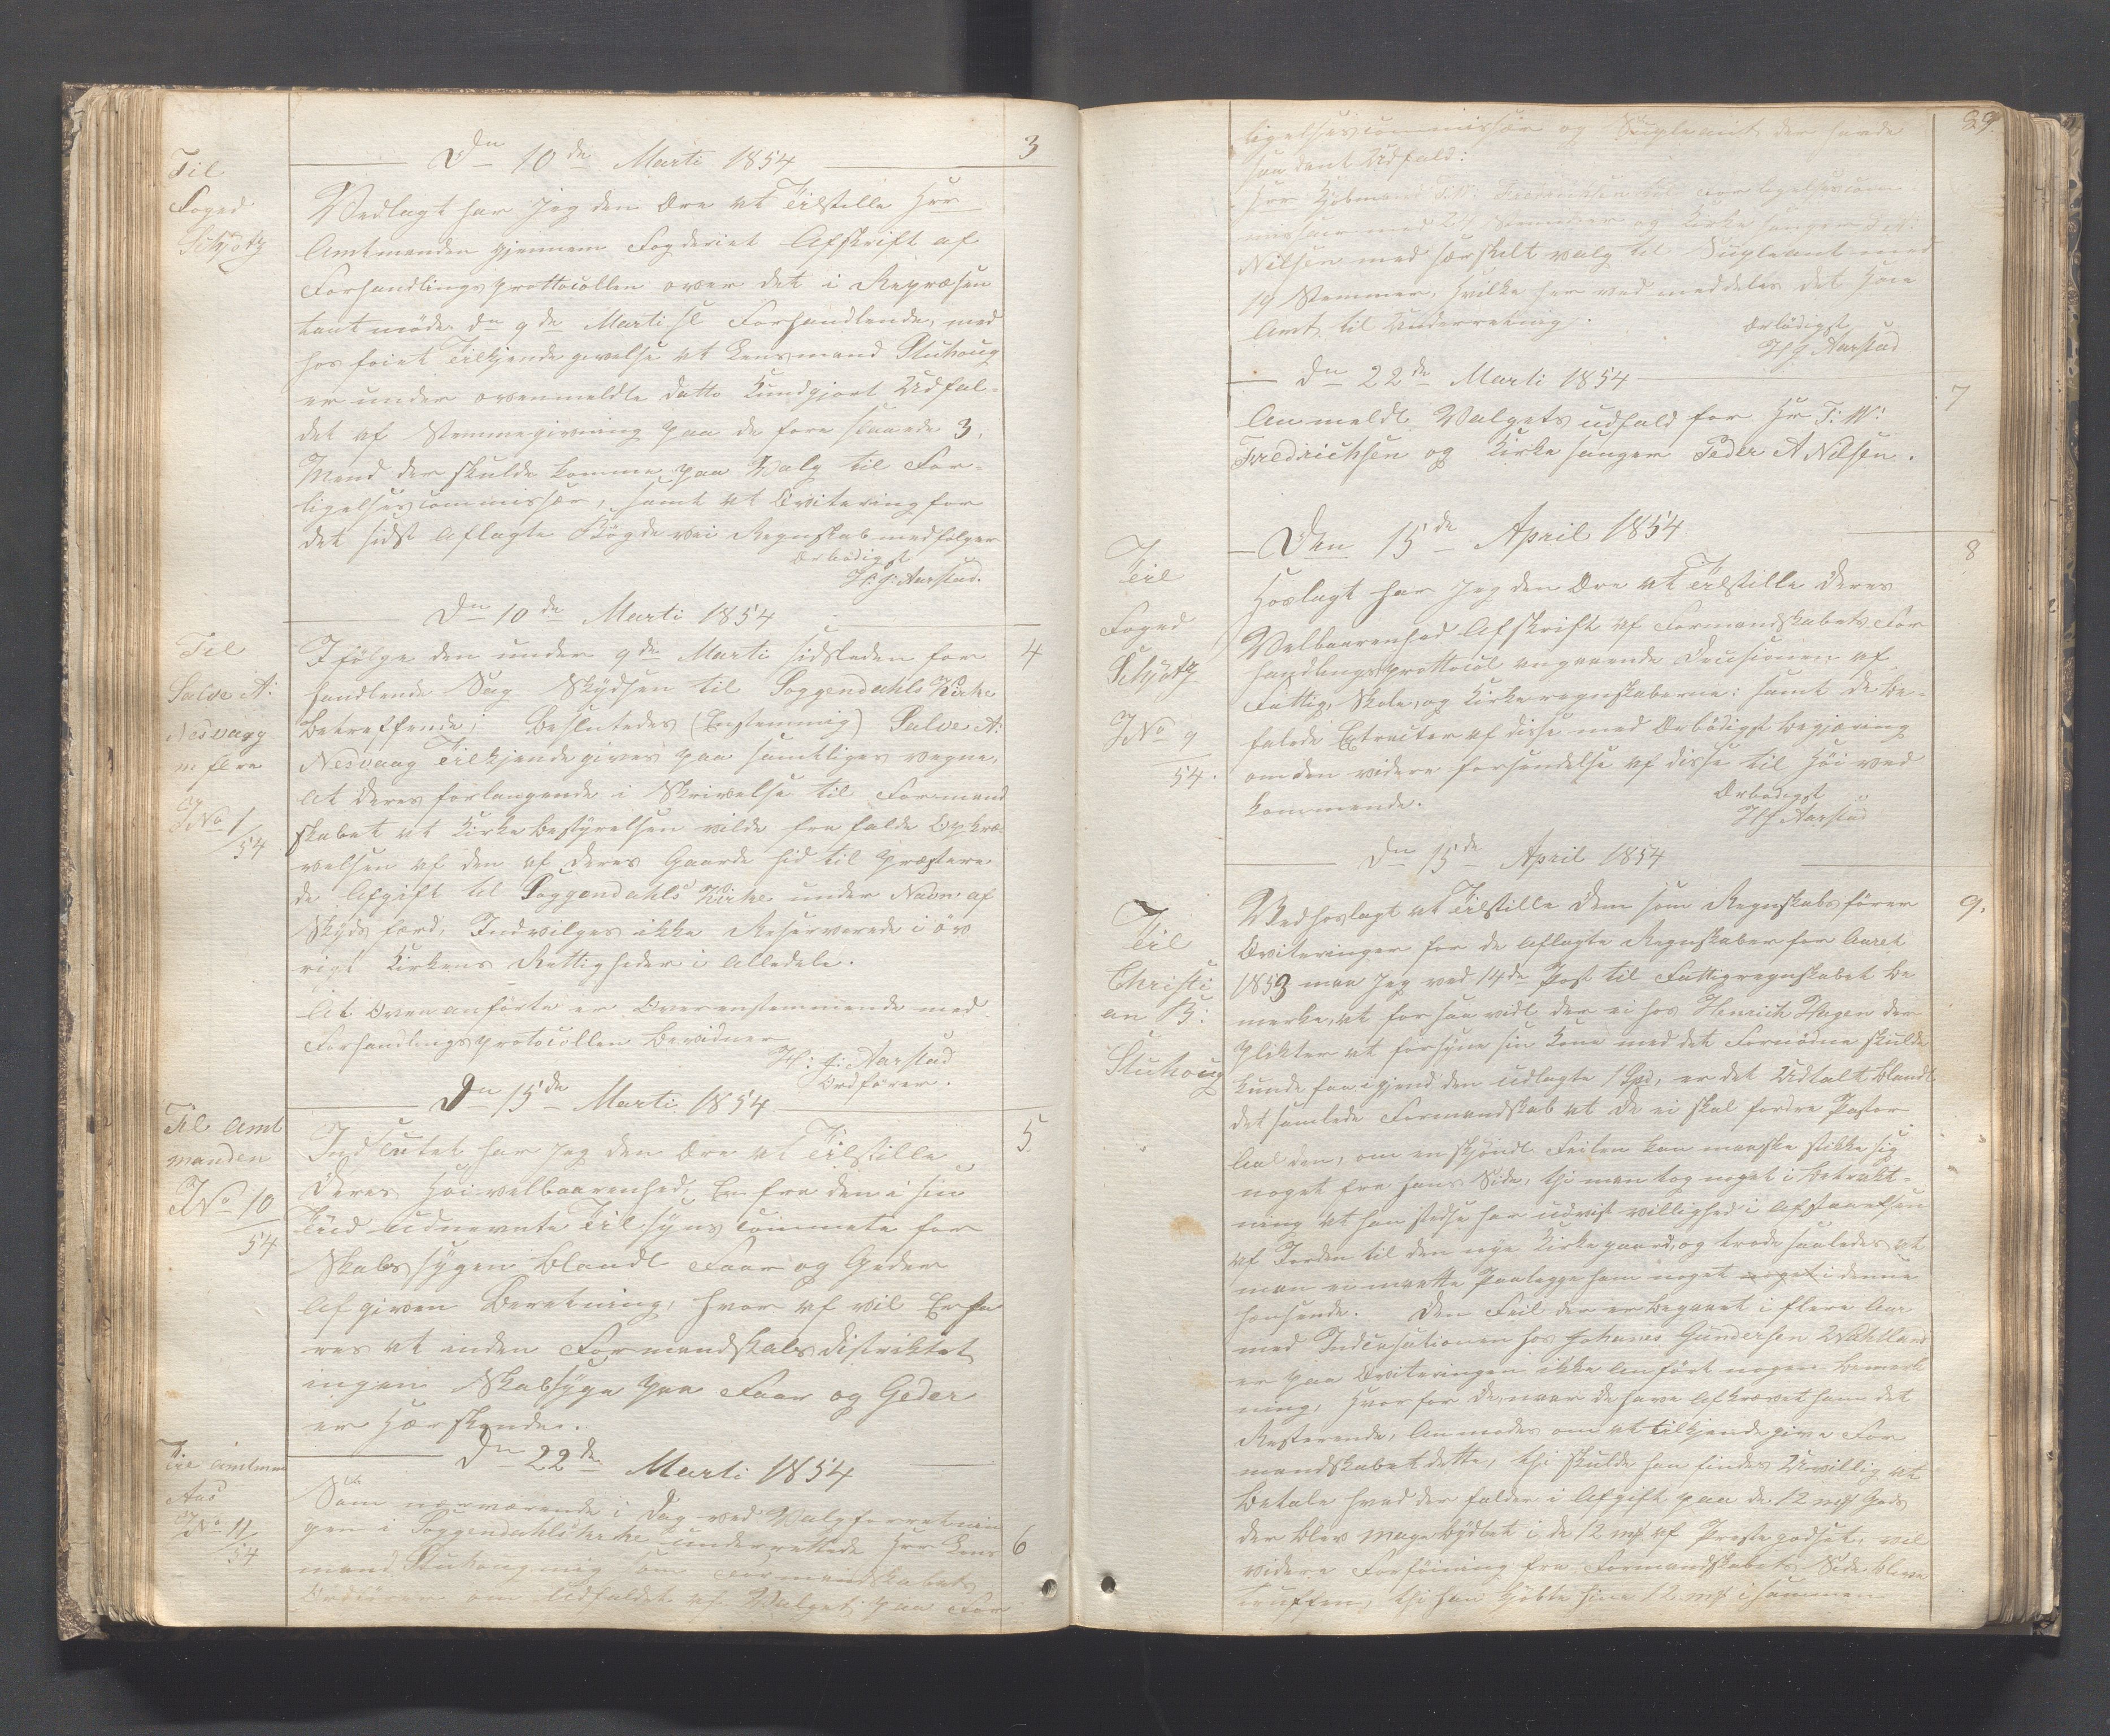 Til
Foged
Schjötz
Dn 10de Marti 1854
3
Vedlagt har Jeg den Ære at Tilstille Hrr
Amtmanden gjennem Fogderiet Afskrift af
Forhandlingsprottocollen over det i Repræsen
tantmöde dn 9de Marti sl Forhandlende, med
hosföiet Tilkjendegivelse at Lensmand Stuhoug
er under ovenmeldte Datto Kundgjort Udfal-
det af Stemmegivning paa de fore slaaede 3,
Mænd der skulde komme paa Valg til For-
ligelsescommissær, samt at Qvitering for
det sidst Aflagte Bögdevei Regnskab medfölger
Ærbödigst
H: J: Aarstad.
Til
Salve A:
Nesvaag
m flere
J No 1/54
Dn 10de Marti 1854
4
Ifölge den under 9de Marti sidstleden for
handlende Sag Skydsen til Soggendahls Kirke
Betreffende; Besluttedes (Enstemmig) Salve A:
Nesvaag Tilkjendegives paa samtliges vegne,
At deres forlangende i Skrivelse til Formand
skabet at Kirke Bestyrelsen vilde fra falde Opkræ-
velsen af den af deres Gaarde hid til præstere
de Afgift til Soggendahls Kirke under Navn af
Skyds færd, Indvilges ikke Reserverede i öv
rigt Kirkens Rettigheder i Alledele.
At Ovenanförte er Overenstemmende med
Forhandlingsprotocollen Bevidner
H: J: Aarstad
Ordförer.
Til Amt
manden
J No 10
54
Dn 15de Marti 1854
5
Indsluttet har Jeg den Ære at Tilstille
Deres Höivelbaarenhed, En fra den i sin
Tiid udnevnte Tilsyns Commete for
Skabssygen Blandt Faar og Geder
Afgiven Beretning, hvor af vil Erfa
res at inden Formandskabsdistriktet
ingen Skabsyge paa Faar og Geder
er Herskende.
Til Amtmand
Aas
J No 11/54
Dn 22de Marti 1854
6
Som nærværende i Dag ved Valgforretnin
gen i Soggendahlskirke underrettede Hrr Lens
mand Stuhoug mig som Formandskabets
Ordförer om Udfaldet af Valget paa For
29.
ligelsescommissær og Supleant der havde
saadant Udfald:
Hrr Kjöbmand T: W: Fredrichsen til Forligelsescom-
missær med 24 Stemmer og Kirkesanger P. A:
Nilsen med særskilt valg til Supleant med
19 Stemmer, Hvilke her ved meddeles det Höie
Amt til Underretning.
Ærbödigst
H J Aarstad
Dn 22de Marti 1854
7
Anmeldt Valgets udfald for Hr T: W:
Fredrichsen og Kirkesanger Peder A Nilsen.
Til
Foged
Schjötz
J No 9
54.
Den 15de April 1854
8
Hoslagt har Jeg den Ære at Tilstille Deres
Velbaarenhed Afskrift af Formandskabets For
handlingsprottocol angaaende Decisionen af
Fattig, Skole, og Kirkeregnskaberne: samt de be-
falede Extracter af disse med Ærbödigst begjæring
om den videre forsendelse af disse til Höi ved
kommende.
Ærbödigst
H J Aarstad
Til
Christi
an B:
Stuhoug
Dn 15de April 1854
9.
Ved hoslagt at Tilstille Dem som Regnskabsförer
Qviteringer for de Aflagte Regnskaber for Aaret
1853 maa Jeg ved 14de Post til Fattigregnskabet be
merke, at for saa vidt der ei hos Henrich Hagen der
plikter at forsyne sin Kone med det Fornödne skulde
kunde faa igjend den udlagte 1 Spd, er det Udtalt blandt
det samlede Formandskab at De ei skal fordre Pastor
Aal den, om en skjöndt Feilen kan maaske stikke sig
noget fra hans Side, thi man tog noget i Betrakt-
ning at han stedse har udvist villighed i Afstaaelsen
af Jorden til den nye Kirkegaard, og trode saaledes at
man ei maatte Paalegge ham noget noget i denne
henseende. Den Feil der er Begaaet i flere Aar
med Indcasationen hos Johanes Gundersen Wahlland
er paa Qviteringen ikke Anfört nogen Bemerk
ning, Hvorfor De, naar De have Afkrævet ham det
Resterende, Anmodes om at tilkjendegive For
mandskabet dette, thi skulde han findes Uvillig at
Betale hvad der falder i Afgift paa de 12 m# Gods
der blev magebyttet i de 12 m# af Prestegodset, vil
videre Forföining fra Formandskabets Side blive
truffen, thi han kjöbte sine 12 m# i sammen